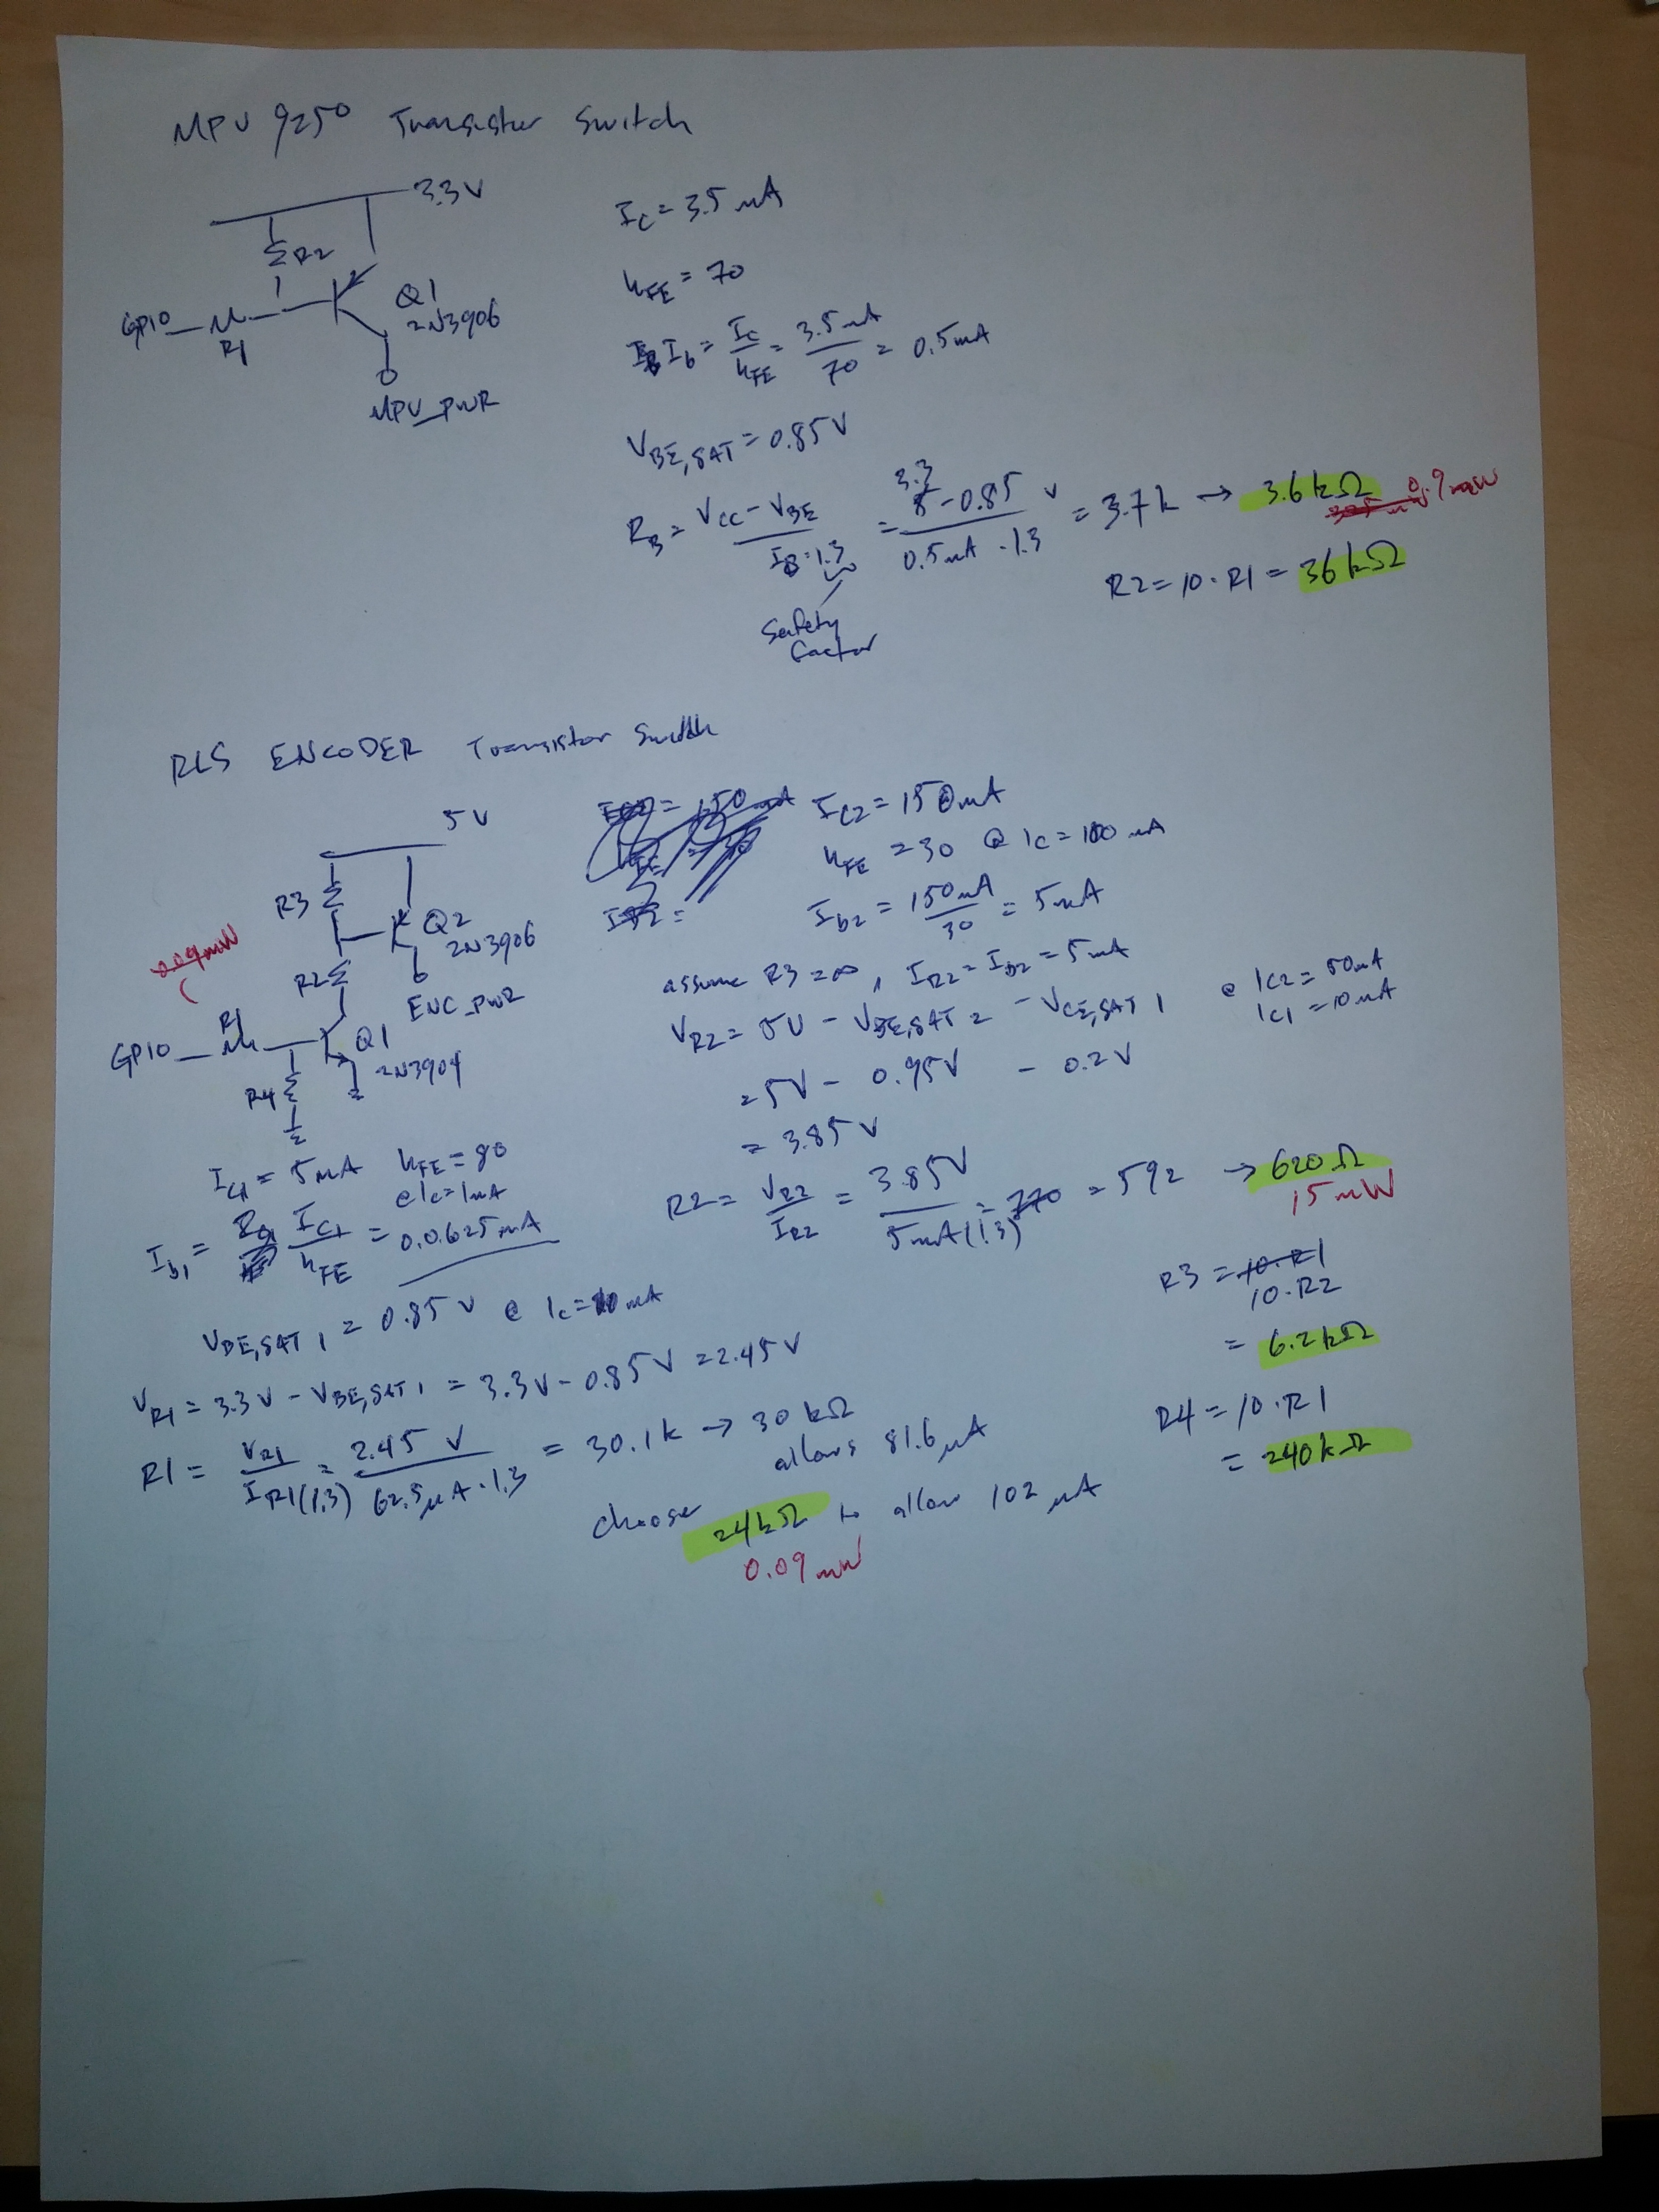 MPU 9250 Transistor Switch
3.3V
R2
GPIO
R1
Q1
2N3906
MPU_PWR
Ic = 3.5 mA
hFE = 70
Ib = Ic/hFE = 3.5mA/70 = 0.5mA
VBE,SAT = 0.85V
RB = (VCC - VBE)/(IB·1.3) = (3.3 - 0.85 V)/(0.5mA · 1.3) = 3.7k → 3.6kΩ 0.9mW
Safety
factor
R2 = 10 · R1 = 36kΩ
RLS ENCODER Transistor Switch
5V
R3
Q2
2N3906
R2
ENC_PWR
0.09mW
R1
GPIO
Q1
2N3904
R4
IC2 = 150mA
hFE = 30 @ Ic = 100 mA
Ib2 = 150mA/30 = 5mA
assume R3 = ∞, IR2 = Ib2 = 5mA
VR2 = 5V - VBE,SAT 2 - VCE,SAT 1 @ IC2 = 50mA
IC1 = 10mA
= 5V - 0.95V - 0.2V
= 3.85V
R2 = VR2/IR2 = 3.85V/5mA(1.3) = 770 = 592 → 620Ω
15mW
R3 = 10·R1
10·R2
= 6.2kΩ
R4 = 10·R1
= 240kΩ
IC1 = 5mA hFE = 80
@ Ic = 1mA
Ib1 = IC1/hFE = 0.0625mA
VBE,SAT 1 = 0.85V @ Ic = 10mA
VR1 = 3.3V - VBE,SAT 1 = 3.3V - 0.85V = 2.45V
R1 = VR1/IR1(1.3) = 2.45 V/62.5μA·1.3 = 30.1k → 30kΩ
allows 81.6μA
choose 24kΩ to allow 102 μA
0.09mW